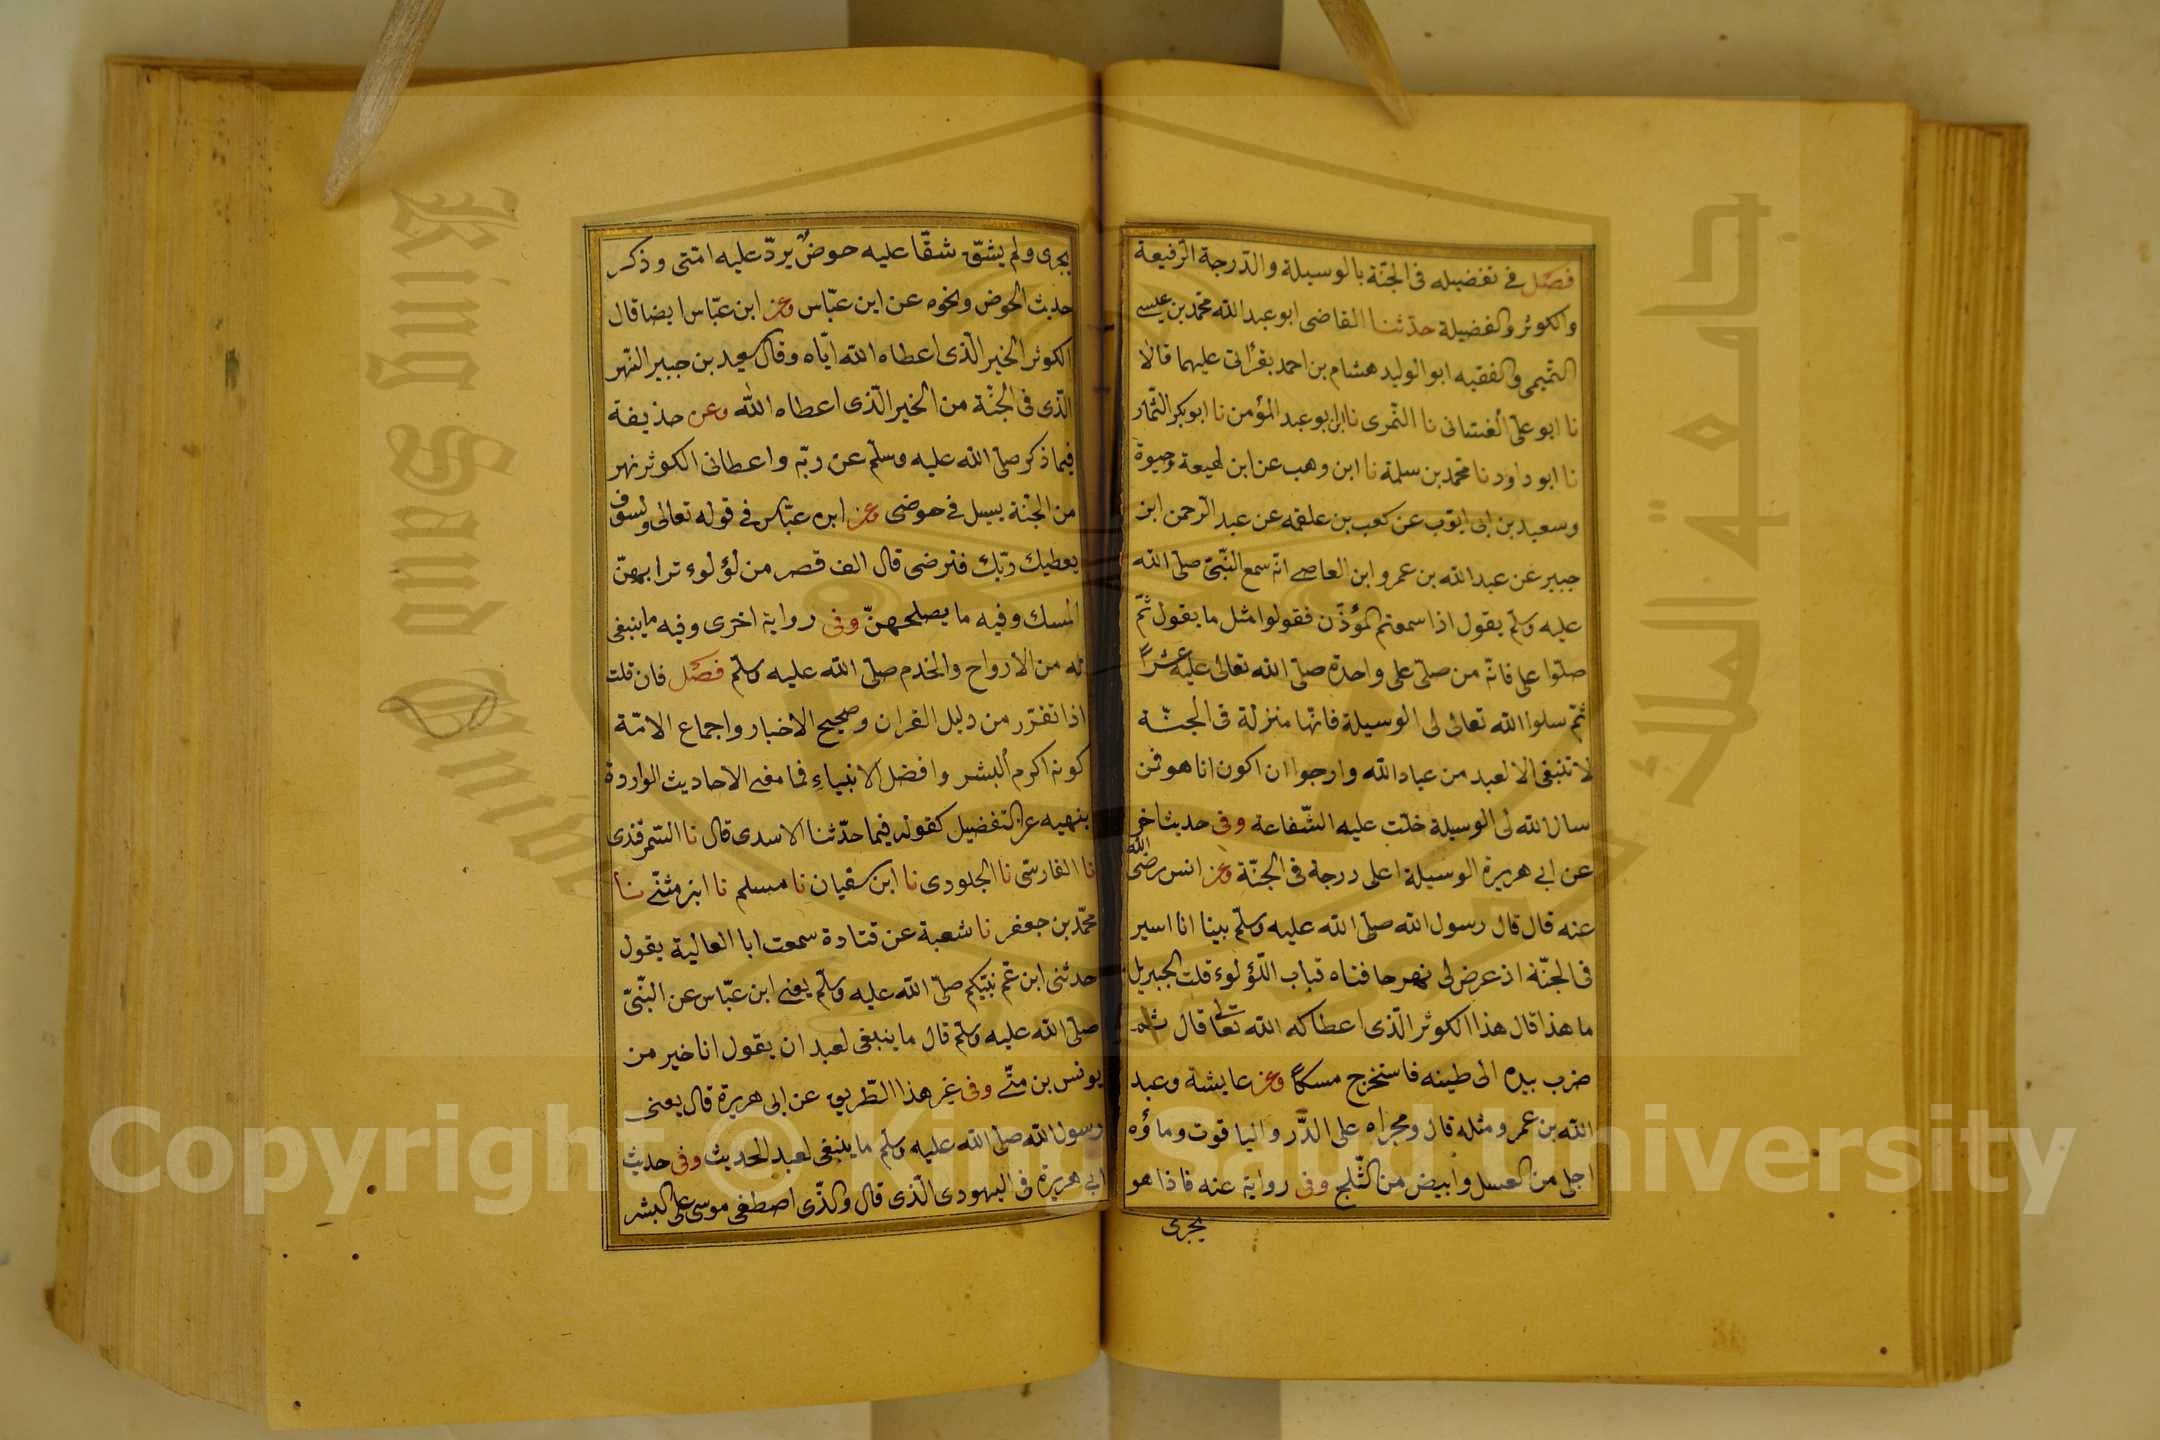 فصل في تفضيله في الجنّة بالوسيلة والدّرجة الرّفيعة
والكوثر والفضيلة حدّثنا القاضى ابو عبد الله محمّد بن عيسى
التّميمى والفقيه ابو الوليد هشام بن احمد بقرائتى عليهما قالا
نا ابو على الغسّانى نا النّمرى نا ابو عبد المؤمن نا ابو بكر التّمار
نا ابو داود نا محمّد بن سلمة نا ابن وهب عن ابن لهيعة وحيوة
وسعيد بن ابى ايّوب عن كعب بن علقمه عن عبد الرّحمن ابن
جبير عن عبد الله بن عمرو ابن العاص انّه سمع النّبىّ صلّى الله
عليه وسلّم يقول اذا سمعتم المؤذّن فقولوا مثل ما يقول ثمّ
صلّوا على فانّه من صلّى على واحدة صلّى الله تعالى عليه عشرًا
ثمّ سلوا الله تعالى لى الوسيلة فانّها منزلة فى الجنّة
لا تنبغى الا لعبد من عباد الله وارجوا ان اكون انا هو فمن
سال الله لى الوسيلة حلّت عليه الشّفاعة وفى حديث اخر
عن ابى هريرة الوسيلة اعلى درجة فى الجنّة وعن انس رضى الله
عنه قال قال رسول الله صلّى الله عليه وسلّم بينا انا اسير
فى الجنّة اذ عرض لى نهر حافتاه قباب اللّؤلوء قلت لجبريل
ما هذا قال هذا الكوثر الّذى اعطاكه الله تعالى قال ثمّ
ضرب بيده الى طينه فاستخرج مسكًا وعن عايشة وعبد
الله بن عمرو مثله قال ومجراه على الدّر واليا قوت وماؤه
احلى من العسل وابيض من الثّلج وفى رواية عنه فاذا هو
يجرى
يجرى ولم يشقّ شقّا عليه حوض يردّ عليه امّتى وذكر
حديث الحوض ونحوه عن ابن عبّاس وعن ابن عبّاس ايضا قال
الكوثر الخير الّذى اعطاه الله ايّاه وقال سعيد بن جبير النّهر
الّذى فى الجنّة من الخير الّذى اعطاه الله وعن حذيفة
فيما ذكر صلّى الله عليه وسلّم عن ربّه واعطانى الكوثر نهر
من الجنّة يسيل فى حوضى وعن ابن عبّاس فى قوله تعالى ولسوف
يعطيك ربّك فترضى قال الف قصر من لؤلوء ترابهنّ
المسك وفيه ما يصلحهنّ وفى رواية اخرى وفيه ما ينبغى
له من الازواج والخدم صلّى الله عليه وسلّم فصل فان قلت
اذا تقرّر من دليل القران وصحيح الاخبار واجماع الامّة
كونه اكرم البشر وافضل الانبياء فما معنى الاحاديث الواردة
بنهيه عن التّفضيل كقوله فيما حدّثنا الاسدى قال نا السّمرقندى
نا الفارسى نا الجلودى نا ابن سفيان نا مسلم نا ابن مثنّى نا
محمّد بن جعفر نا شعبة عن قتادة سمعت ابا العالية يقول
حدثنى ابن عمّ نبيّكم صلّى الله عليه وسلّم يعنى ابن عبّاس عن النّبىّ
صلّى الله عليه وسلّم قال ما ينبغى لعبد ان يقول انا خير من
يونس بن متّى وفى غير هذا الطّريق عن ابى هريرة قال يعنى
رسول الله صلّى الله عليه وسلّم ما ينبغى لعبد الحديث وفى حديث
ابى هريرة فى اليهودى الّذى قال والّذى اصطفى موسى على البشر
جامعة الملك
King Saud Univer
Copyright © King Saud University